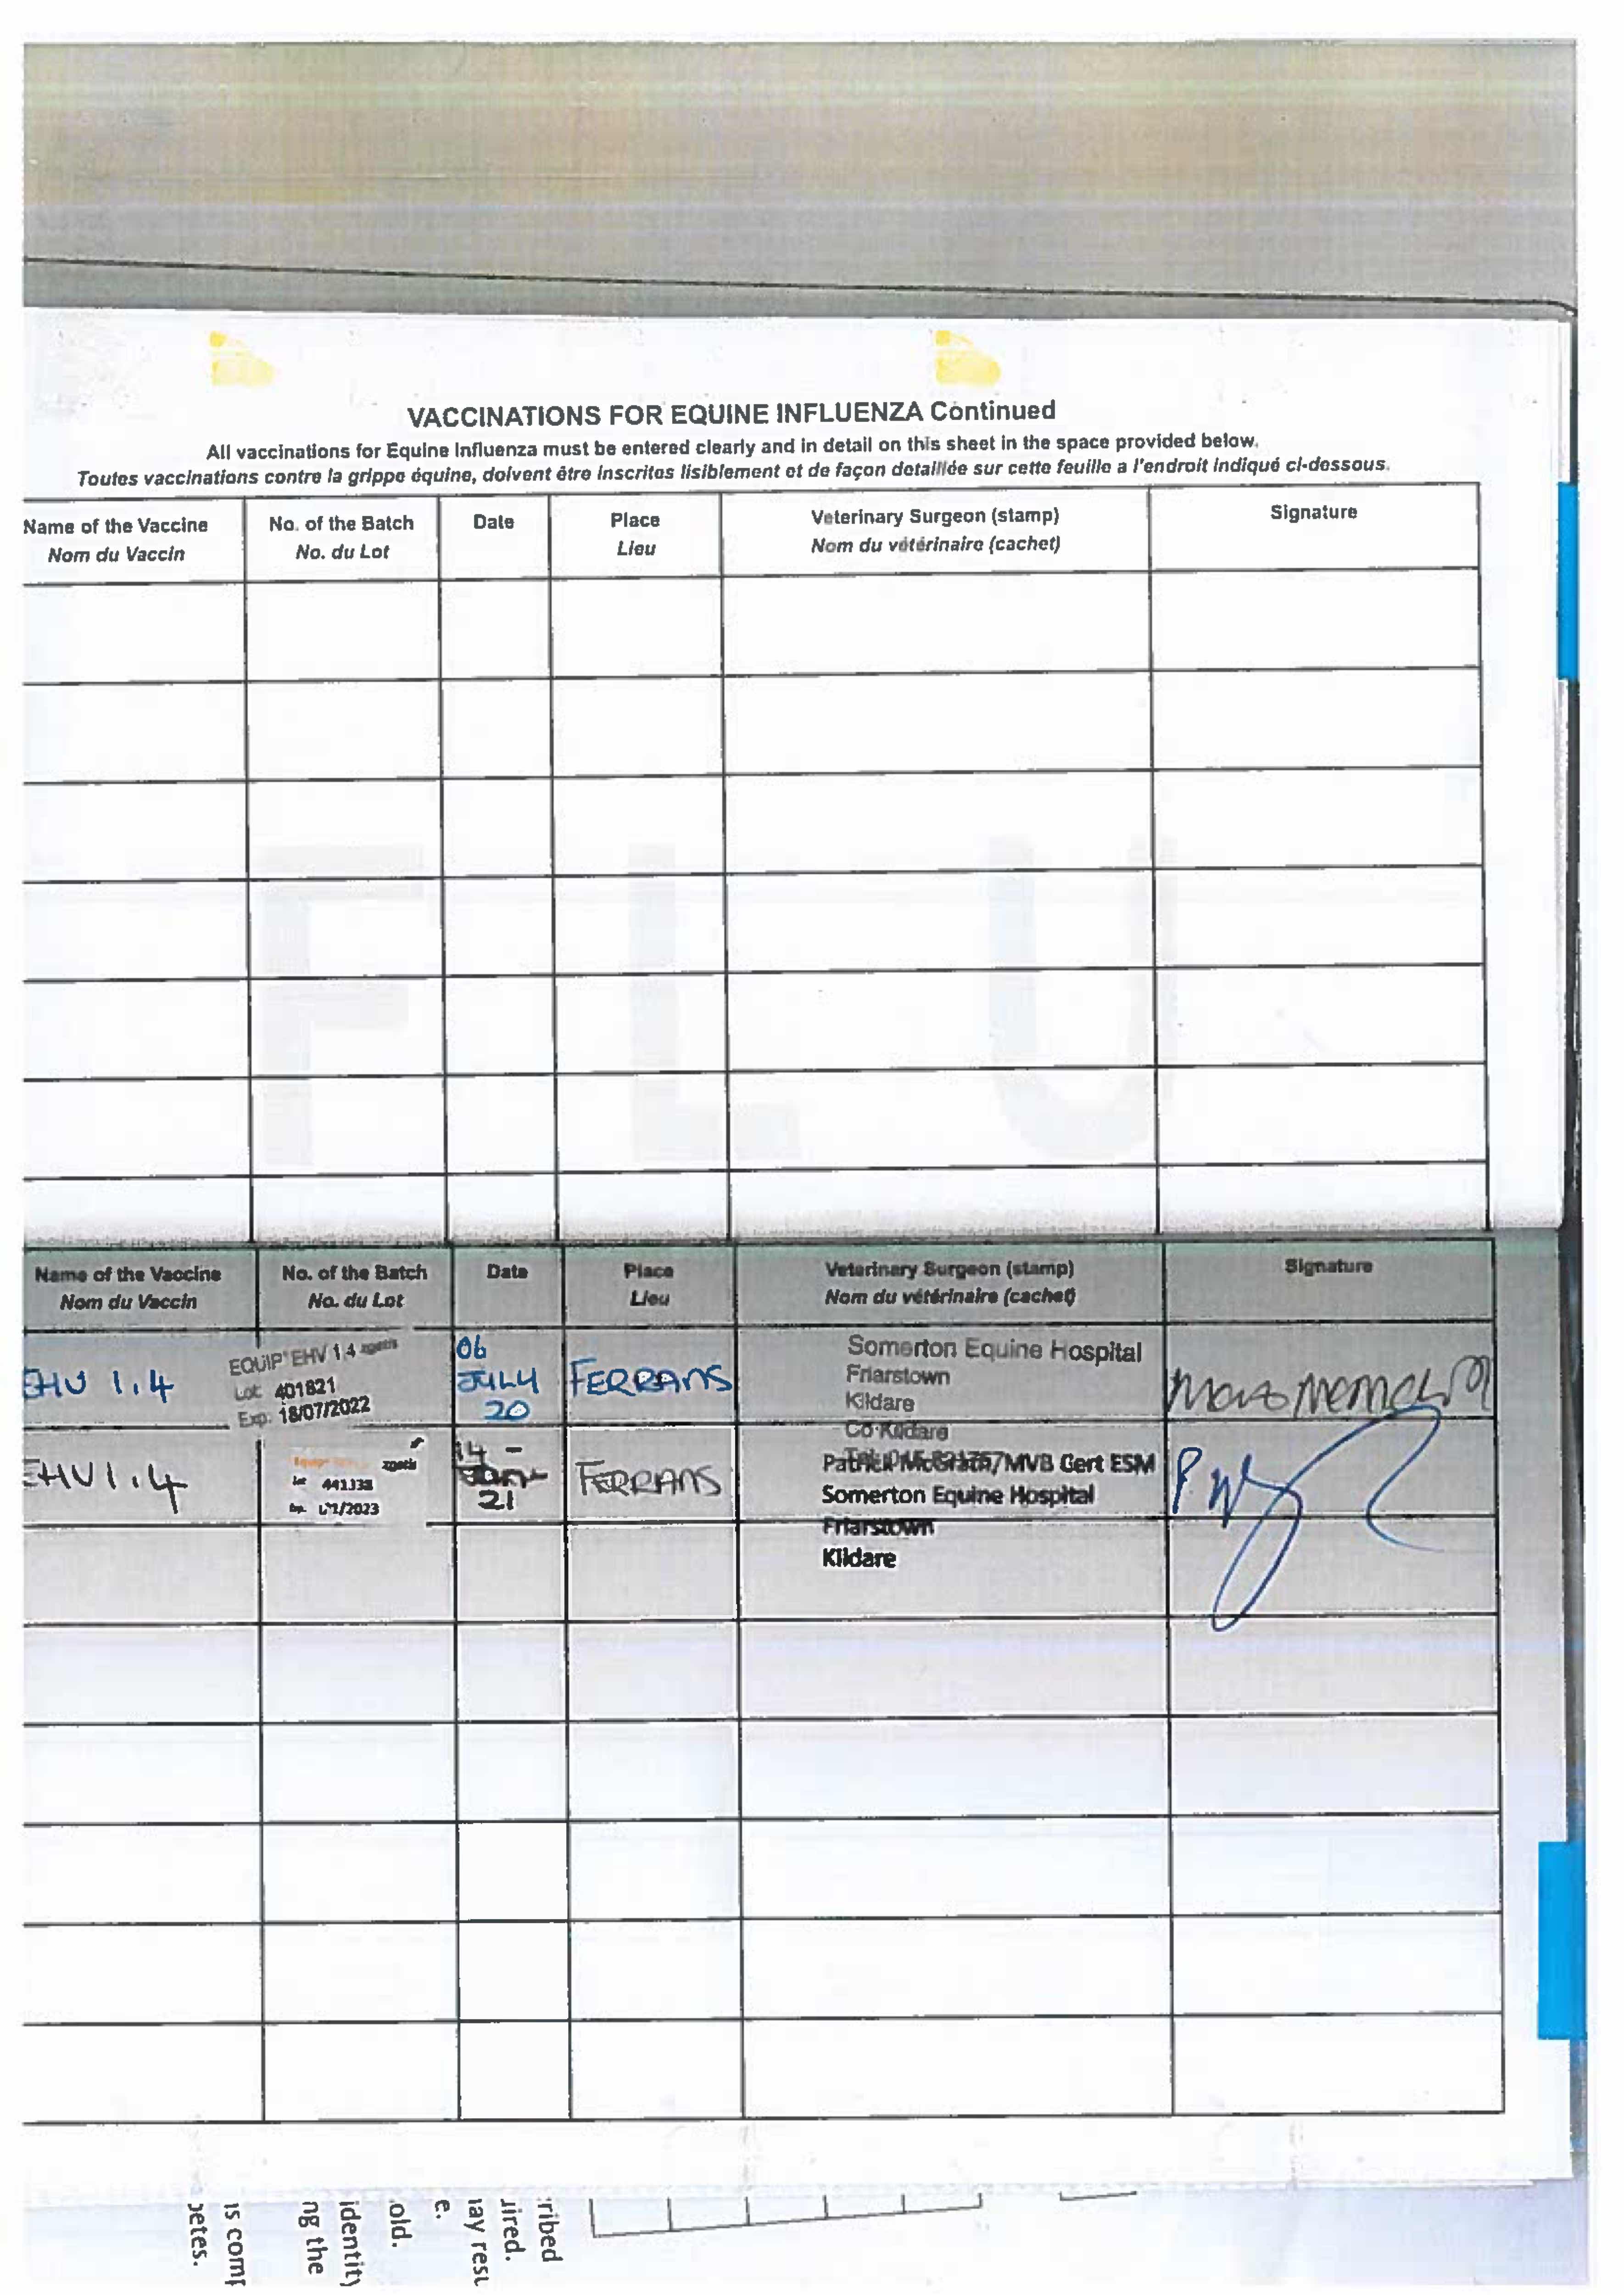 VACCINATIONS FOR EQUINE INFLUENZA Continued
All vaccinations for Equine Influenza must be entered clearly and in detail on this sheet in the space provided below.
Toutes vaccinations contre la grippe équine, doivent être inscrites lisiblement et de façon detaillée sur cette feuille a l'endroit indiqué ci-dessous.
Name of the Vaccine
Nom du Vaccin
No. of the Batch
No. du Lot
Date
Place
Lieu
Veterinary Surgeon (stamp)
Nom du vétérinaire (cachet)
Signature
FLU
Name of the Vaccine
Nom du Vaccin
No. of the Batch
No. du Lot
Date
Place
Lieu
Veterinary Surgeon (stamp)
Nom du vétérinaire (cachet)
Signature
EHV 1.4
EQUIP EHV 1,4 zoetis
Lot: 401821
Exp: 18/07/2022
06
JULY
20
FERRANS
Somerton Equine Hospital
Friarstown
Kildare
Co Kildare
EHV 1.4
zoetis
Lot 441338
/2023
14 -
21
FERRANS
Patrick McGrath, MVB Cert ESM
Somerton Equine Hospital
Friarstown
Kildare
ribed
uired.
lay resu
e.
old.
identity
ng the
is comp
petes.